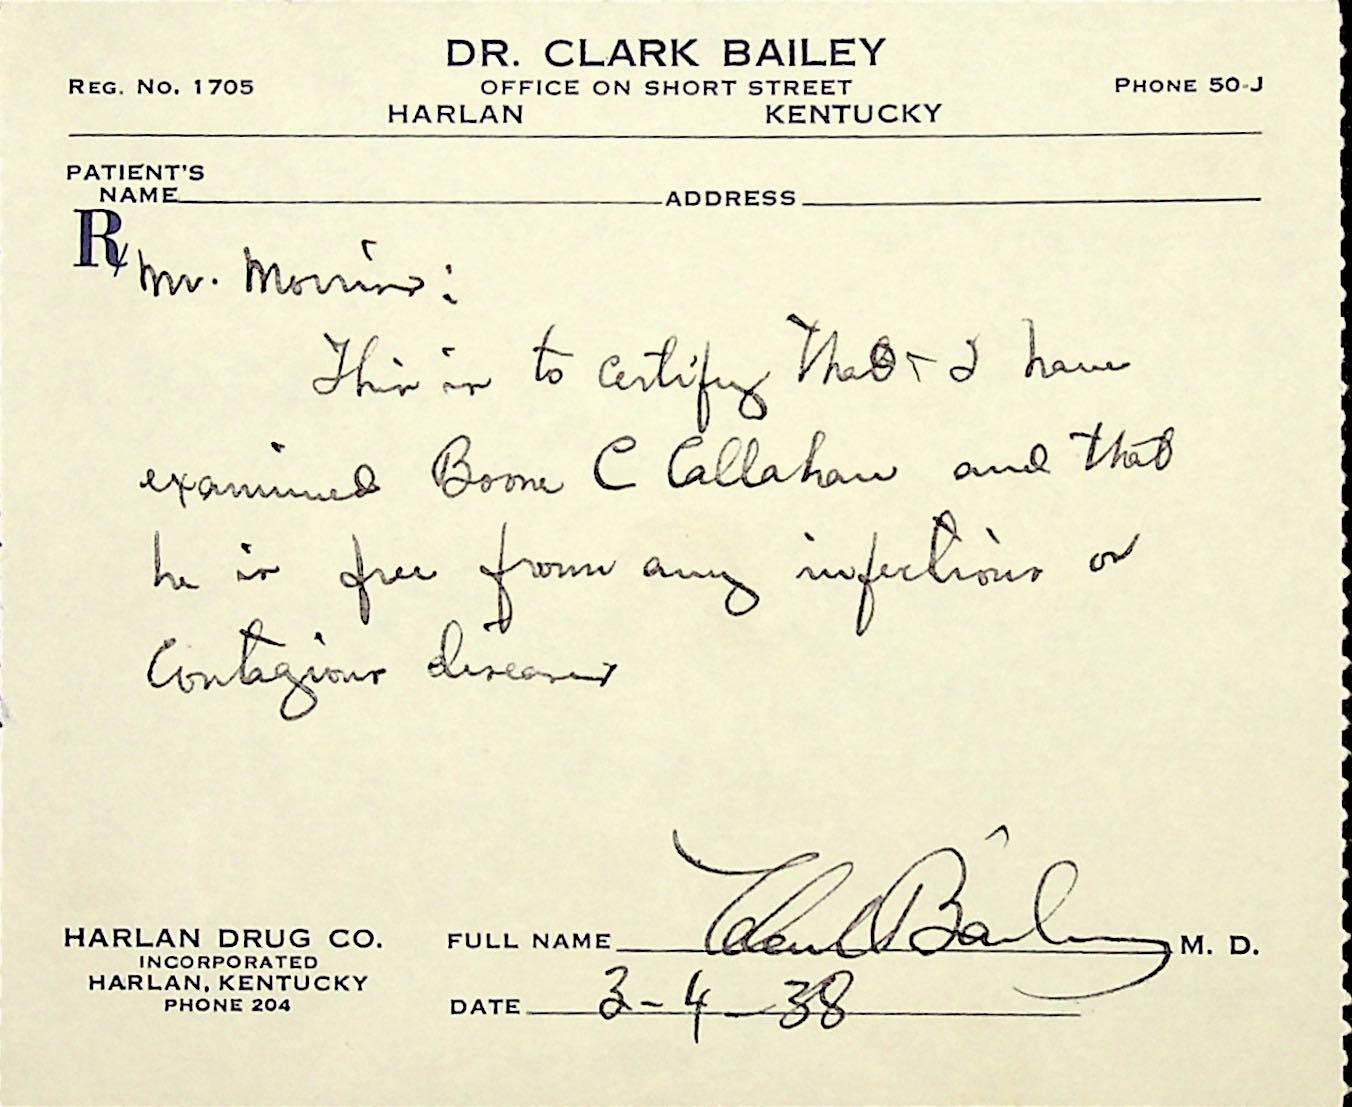 DR. CLARK BAILEY
REG. NO. 1705 OFFICE ON SHORT STREET PHONE 50-J
HARLAN KENTUCKY
PATIENT'S
NAME ADDRESS
Rx
Mr. Morris:
This is to certify that I have
examined Boone C Callahan and that
he is free from any infectious or
Contagious diseases
Clark Bailey M. D.
HARLAN DRUG CO. FULL NAME
INCORPORATED
HARLAN, KENTUCKY
PHONE 204 DATE 3-4-38